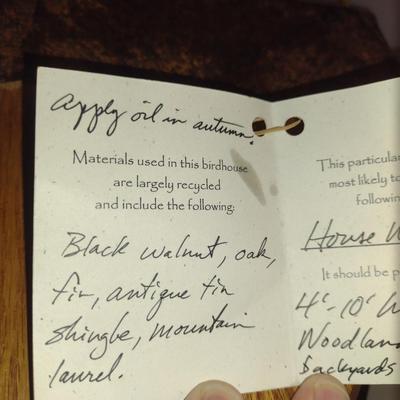 Apply oil in autumn.
Materials used in this birdhouse
are largely recycled
and include the following:
Black walnut, oak,
fir, antique tin
shingle, mountain
laurel.
This particular
most likely to
followin
House
It should be p
4'-10'
Woodlan
backyards